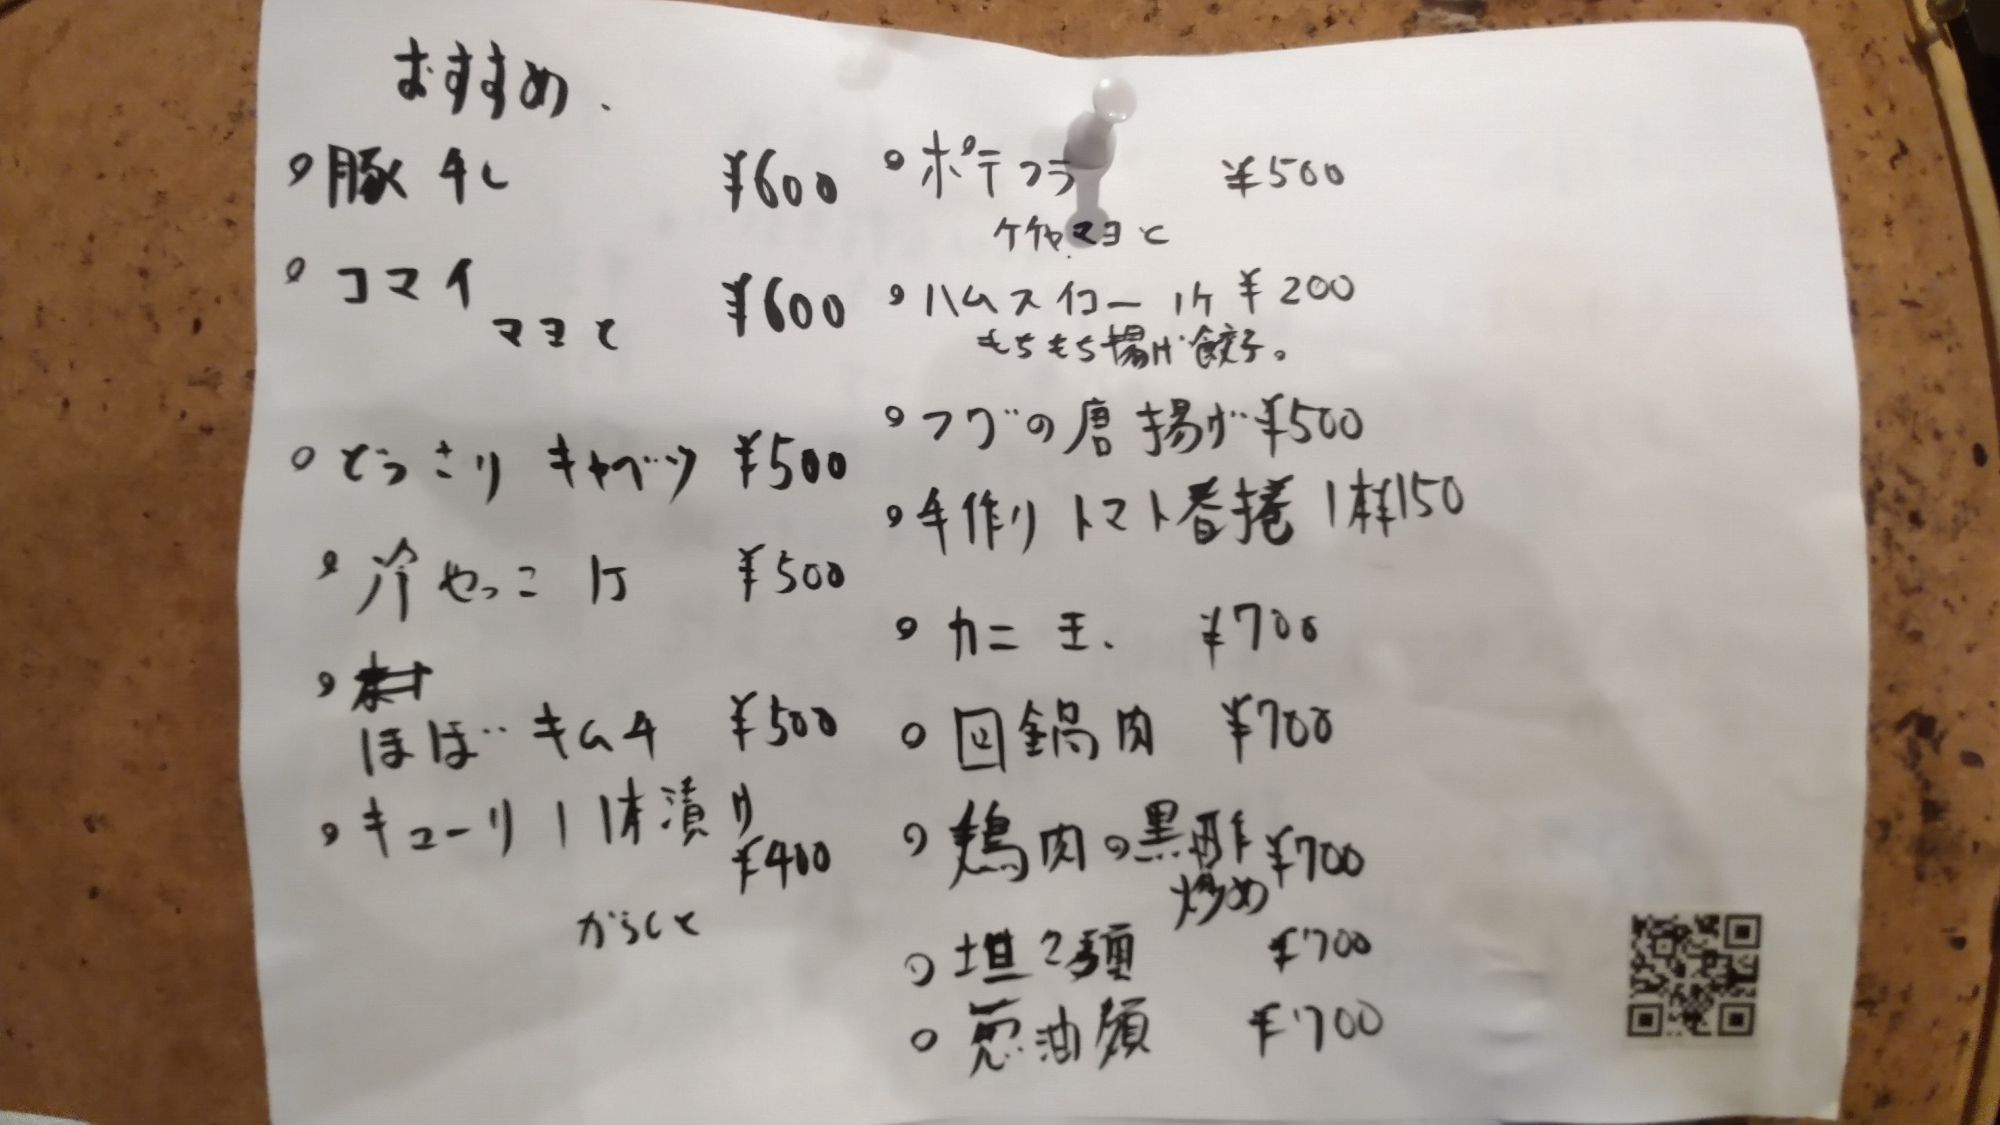 おすすめ.
豚キム ¥600
コマイ ¥600
マヨと
どっさり キャベツ ¥500
冷やっこ 1丁 ¥500
ほぼキムチ ¥500
キューリ1本漬け
¥400
からしと
ポテフラ ¥500
ケチャマヨと
ハムスイコー 1ケ ¥200
もちもち揚げ餃子。
フグの唐揚げ ¥500
手作りトマト春捲 1本¥150
カニ玉. ¥700
回鍋肉 ¥700
鶏肉の黒酢 ¥700
炒め
坦々麺 ¥700
葱油麺 ¥700